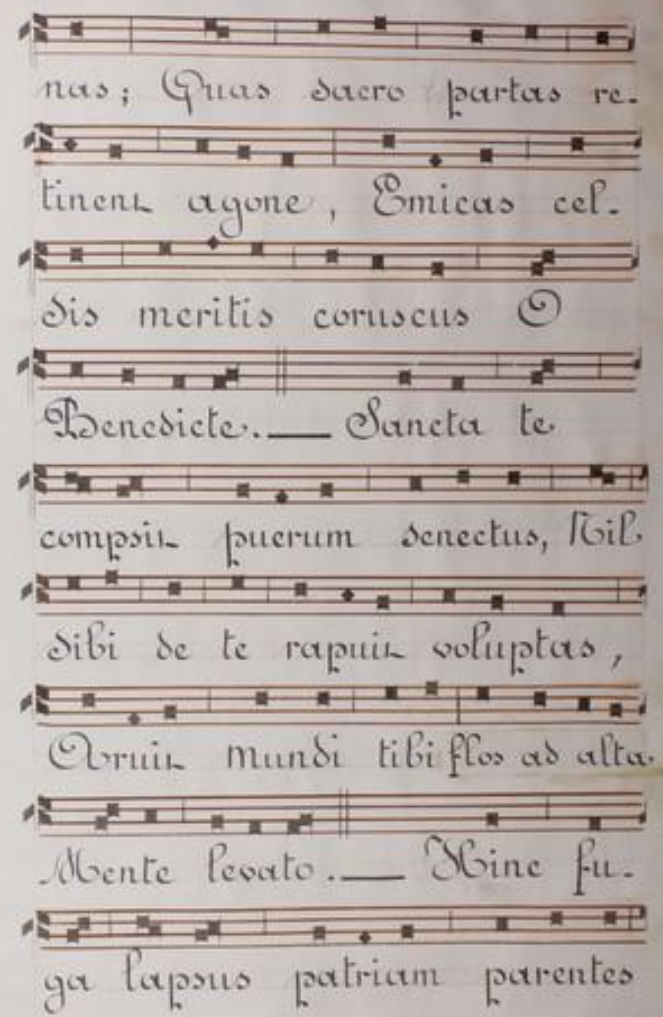 nas; Quas sacro partas re-
tinent agone, Emicas cel-
sis meritis coruscus O
Benedicte. — Sancta te
compsit puerum senectus, Nil
sibi de te rapuit voluptas,
Aruit mundi tibi flos ad alta
Mente levato. — Hinc fu-
ga lapsus patriam parentes